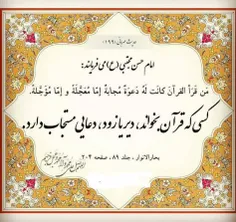 امام حسن مجتبی (ع) می فرمایند:
مَن قَرَأَ القُرآنَ کانَت لَهُ دَعوَةٌ مُجابَةٌ إمّا مُعَجَّلَةٌ وَ إمّا مُؤَجَّلَةٌ.
کسی که قرآن بخواند، دیر یا زود، دعایی مستجاب دارد.
بحارالانوار، جلد ۸۹، صفحه ۲۰۴